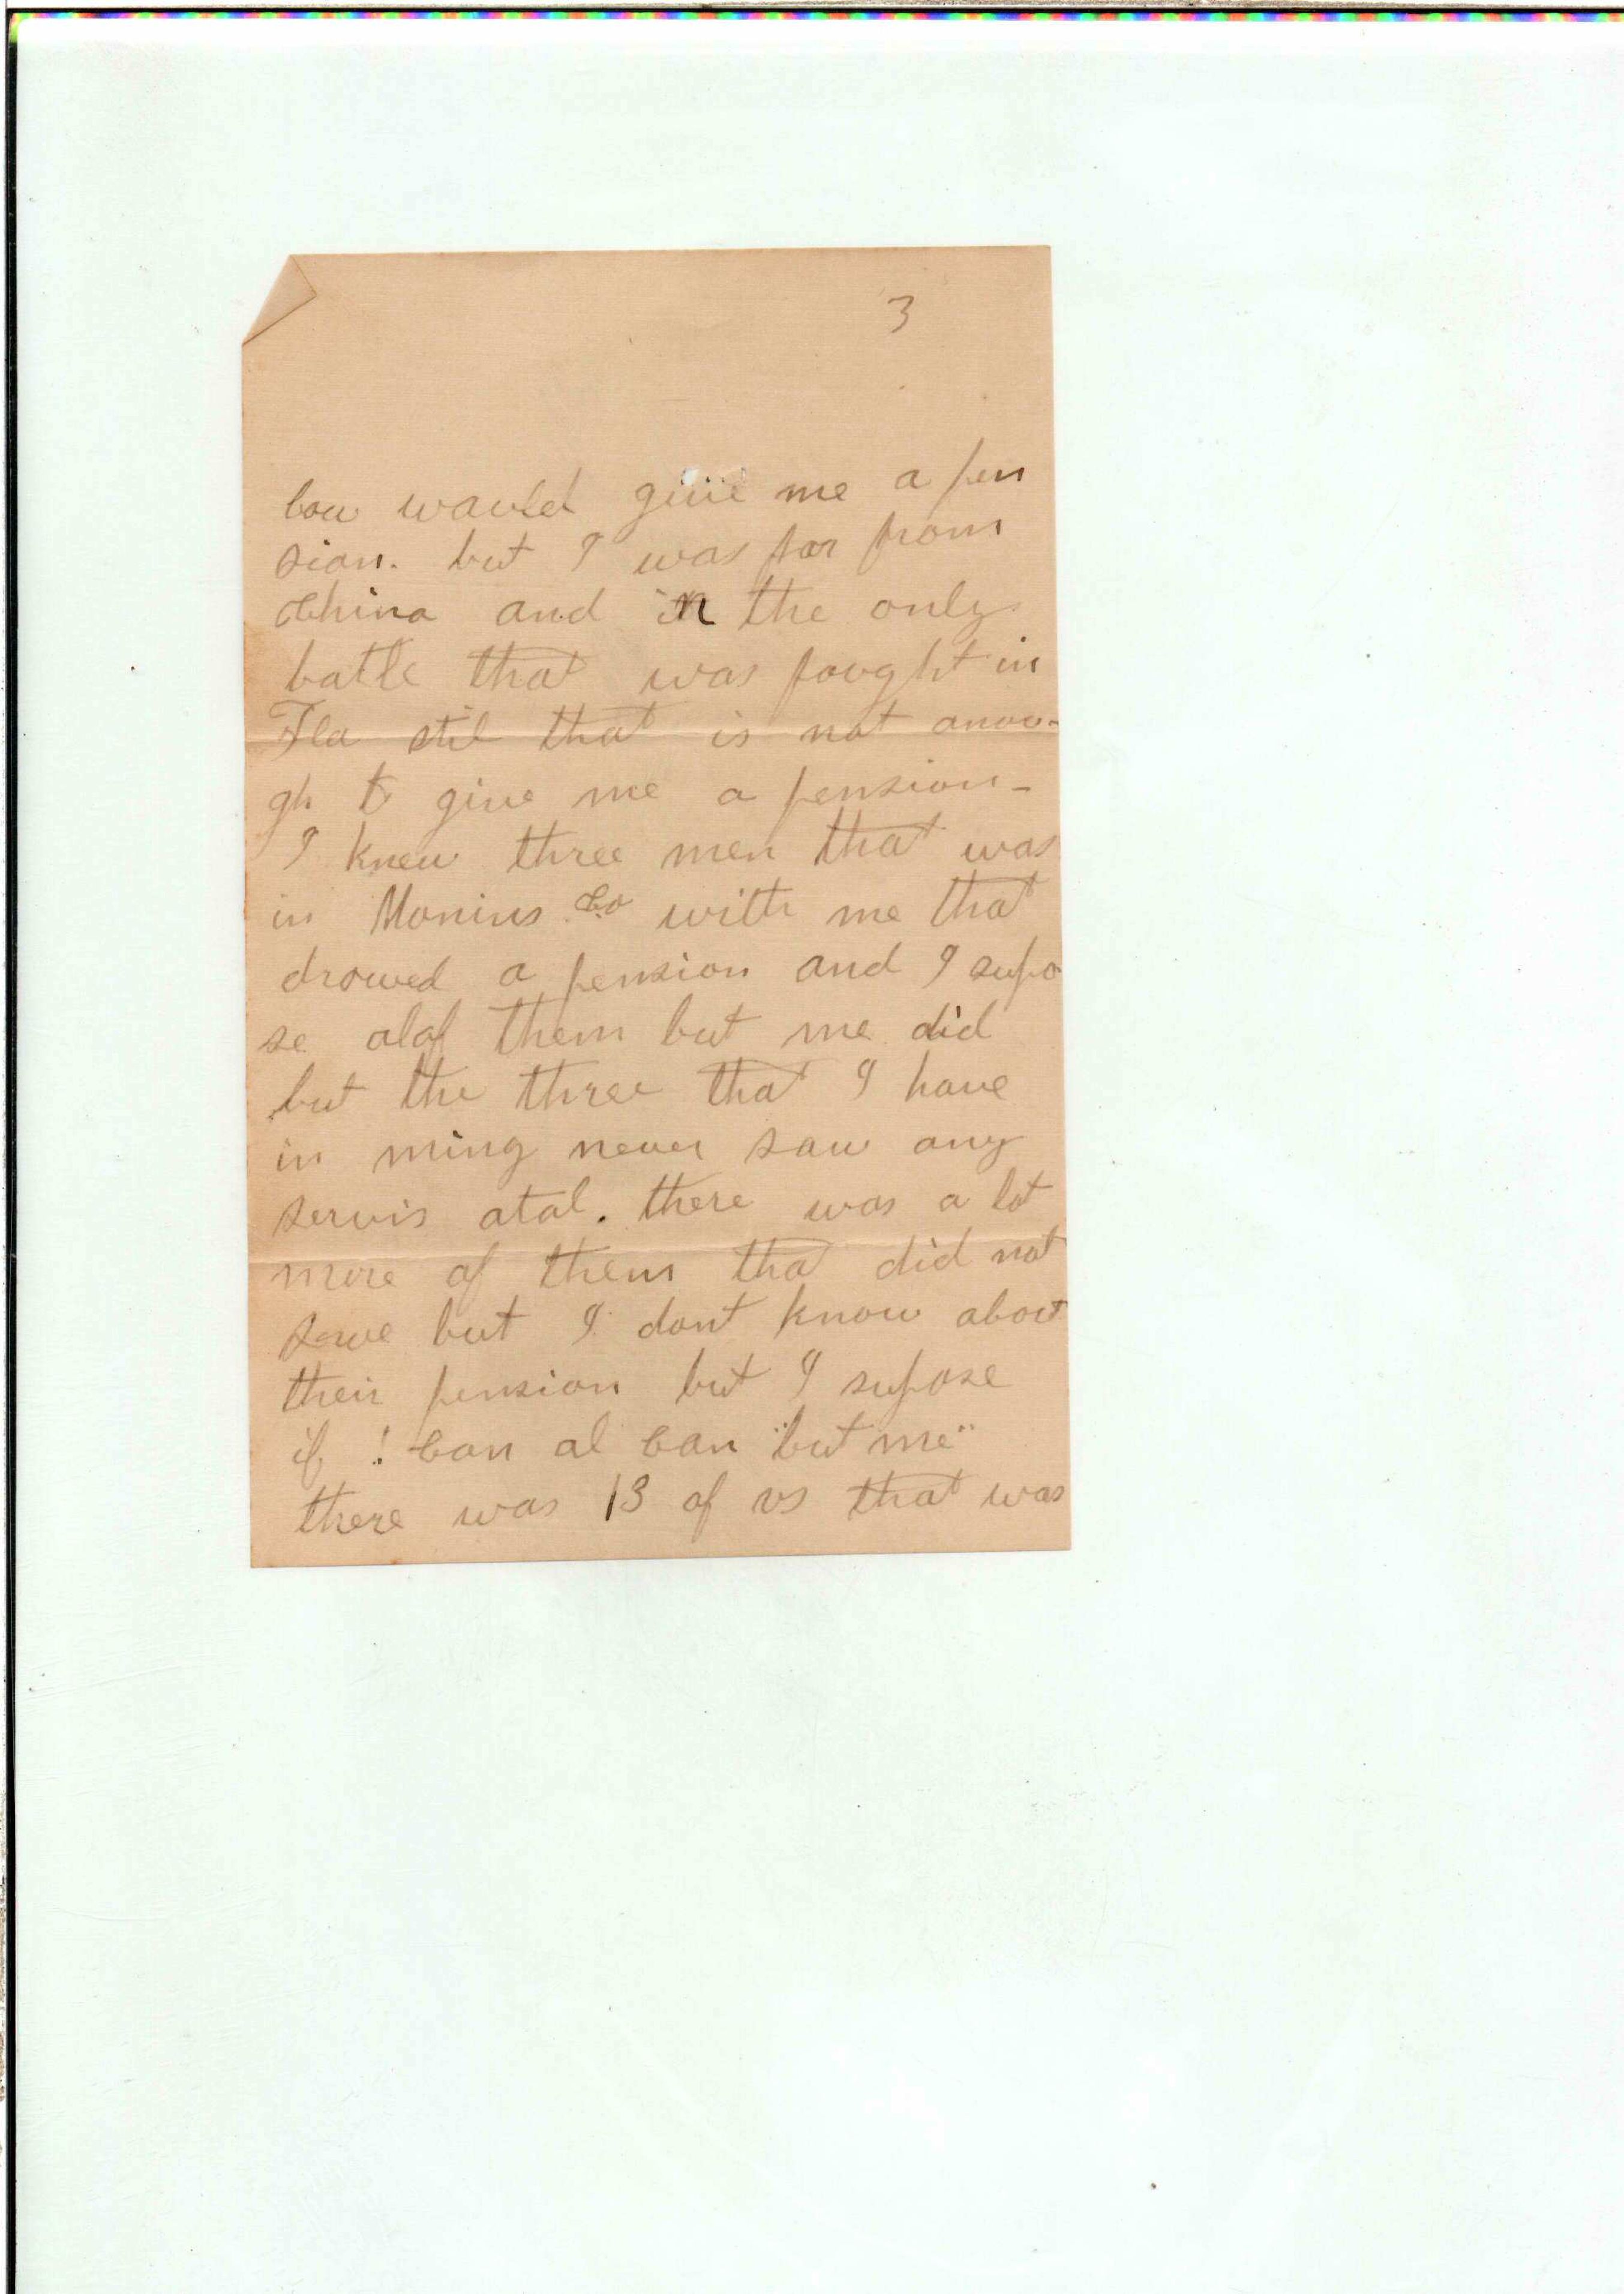 3
law would give me a pen
sion. but I was far from
China and in the only
batle that was fought in
Fla stil that is not anou-
gh to give me a pension-
I knew three men that was
in Co with me that
drowed a pension and I supo
se alof them but me did
but the three that I have
in ming never saw any
servis atal. there was a lot
more of them that did not
serve but I dont know about
their pension but I supose
if 1 can al can "but me"
there was 13 of us that was